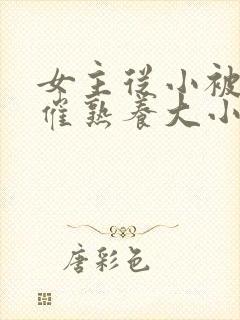 女主从小被
催熟养大小
唐彩色